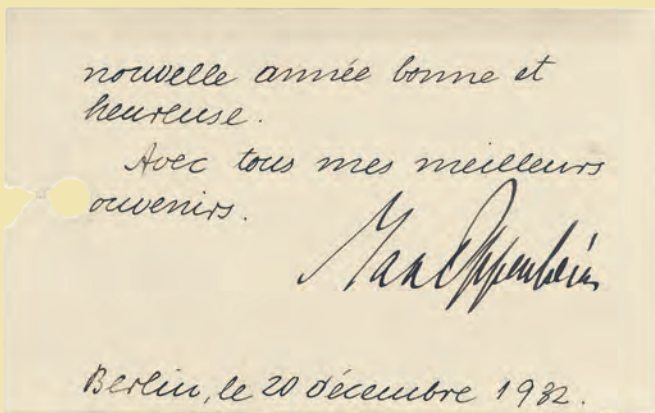 nouvelle année bonne et
heureuse.
Avec tous mes meilleurs
ouvenirs.
Max Oppenheim
Berlin, le 20 décembre 1932.